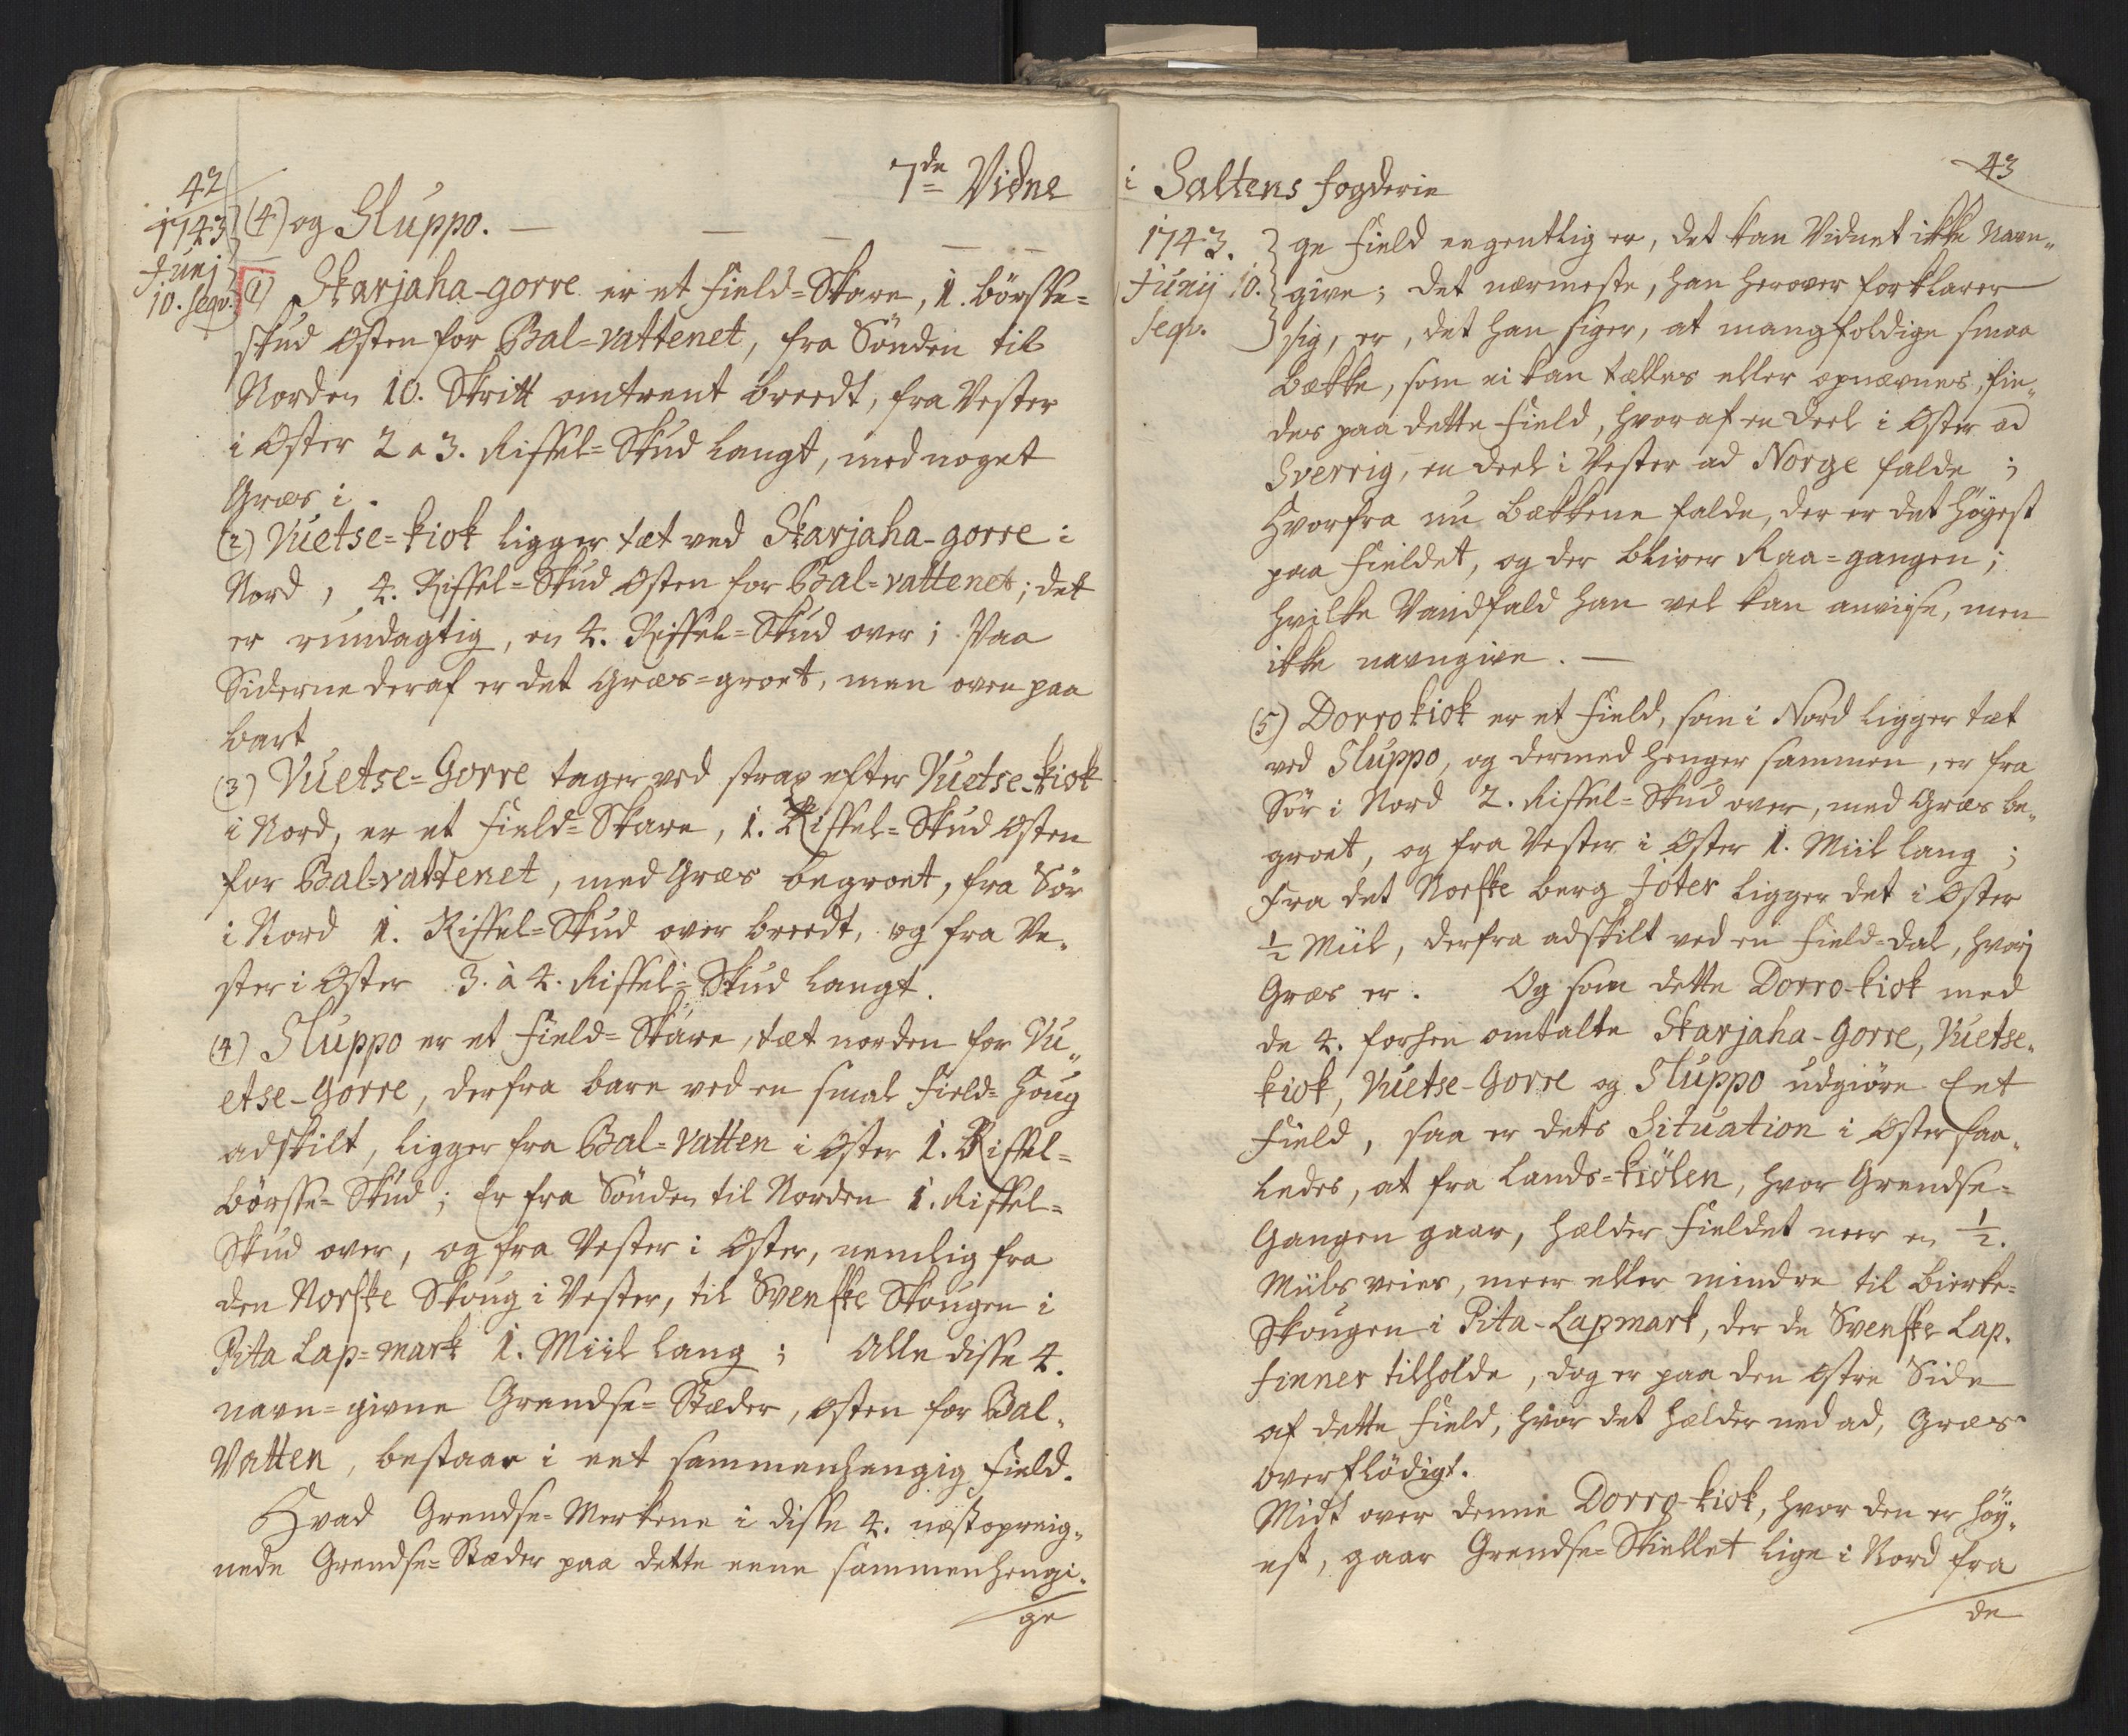 42
7de Vidne
1743
Junj
10. seqv.
(4) og Sluppo. — — — — —
(1) Skarjaha-gorre er et Field-Skare, 1. börsse-
skud Osten for Bal-vattenet, fra Sönden til
Norden 10. Skritt omtrent breedt, fra Vester
i Oster 2 a 3. Riffel-Skud langt, med noget
Græs i.
(2) Vuetse-kiok ligger tæt ved Skarjaha-gorre i
Nord, 4. Riffel-Skud Osten for Bal-vattenet; det
er rundagtig, en 4. Riffel-Skud over; Paa
Siderne deraf er det Græs-groet, men oven paa
bart
(3) Vuetse-Gorre tager ved strax efter Vuetse-kiok
i Nord, er et Field-Skare, 1. Riffel-Skud Osten
for Bal-vattenet, med Græs begroet, fra Sör
i Nord 1. Riffel-Skud over breedt, og fra Ve„
ster i Oster 3. à 4. Riffel-Skud langt.
(4) Sluppo er et Field-Skare, tæt norden for Vu„
etse-Gorre, derfra bare ved en smal Field-Houg
adskilt, ligger fra Bal-Vatten i Oster 1. Riffel-
börsse-Skud; Er fra Sönden til Norden 1. Riffel-
Skud over, og fra Vester i Oster, nemlig fra
den Norske Skoug i Vester, til Svenske Skougen i
Pita Lap-mark 1. Miil lang; Alle disse 4.
navn-givne Grendse-Stæder, Osten for Bal-
Vatten, bestaar i eet sammenhengig Field.
Hvad Grendse-Merkene i disse 4. næstopreig„
nede Grendse-Stæder paa dette eene sammenhengi-
ge
i Saltens Fogderie
43
1743.
Junij 10.
seqv.
ge Field eegentlig er, det kan Vidnet ikke Navn„
give; det nærmeste, han herover forklarer
sig, er, det han siger, at mangfoldige smaa
Bække, som ei kan tælles eller opnævnes, fin„
des paa dette Field, hvoraf en deel i Oster ad
Sverrig, en deel i Vester ad Norge falde;
Hvorfra nu Bækkene falde, der er det höyest
paa Fieldet, og der bliver Raa-gangen;
hvilke Vandfald han vel kan anviise, men
ikke navngive. —
(5) Dorrokiok er et Field, som i Nord ligger tæt
ved Sluppo, og dermed henger sammen, er fra
Sör i Nord 2. Riffel-Skud over, med Græs be„
groet, og fra Vester i Oster 1. Miil lang;
Fra det Norske berg Joter ligger det i Oster
½ Miil, derfra adskilt ved en Field-dal, hvorj
Græs er. Og som dette Dorro-kiok med
de 4. forhen omtalte Skarjaha-Gorre, Vuetse-
kiok, Vuetse-Gorre og Sluppo udgiöre Eet
Field, saa er dets Situation i Oster saa„
ledes, at fra Lands-kiölen, hvor Grendse-
Gangen gaar, hælder Fieldet neer en ½.
Miils veies, meer eller mindre til Birke-
Skougen i Pita-Lapmark, der de Svenske Lap-
finner tilholde, dog er paa den Ostre Side
af dette Field, hvor det hælder ned ad, Græs
overflödigt.
Midt over denne Dorro-kiok, hvor den er höy„
est, gaar Grendse-Skiellet lige i Nord fra
de